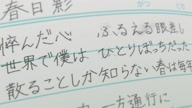 春日影
悴んだ心 ふるえる眼差し
世界で僕は ひとりぼっちだった
散ることしか知らない春は毎年
一方通行に